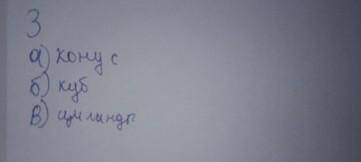 3
а) конус
б) куб
в) цилиндр